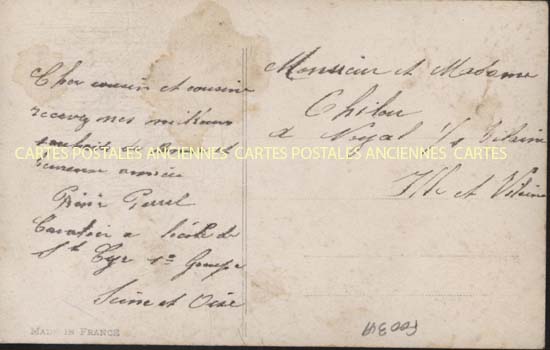 Cher cousin et cousine
recevez mes meilleurs
souhaits de bonne et
heureuse année
René Perrel
Cavalier a l'école de
St Cyr 1er Groupe
Seine et Oise
MADE IN FRANCE
Monsieur et Madame
Chilou
a Noyal s/s Vilaine
Ille et Vilaine
CARTES POSTALES ANCIENNES CARTES POSTALES ANCIENNES CARTES POSTALES ANCIENNES